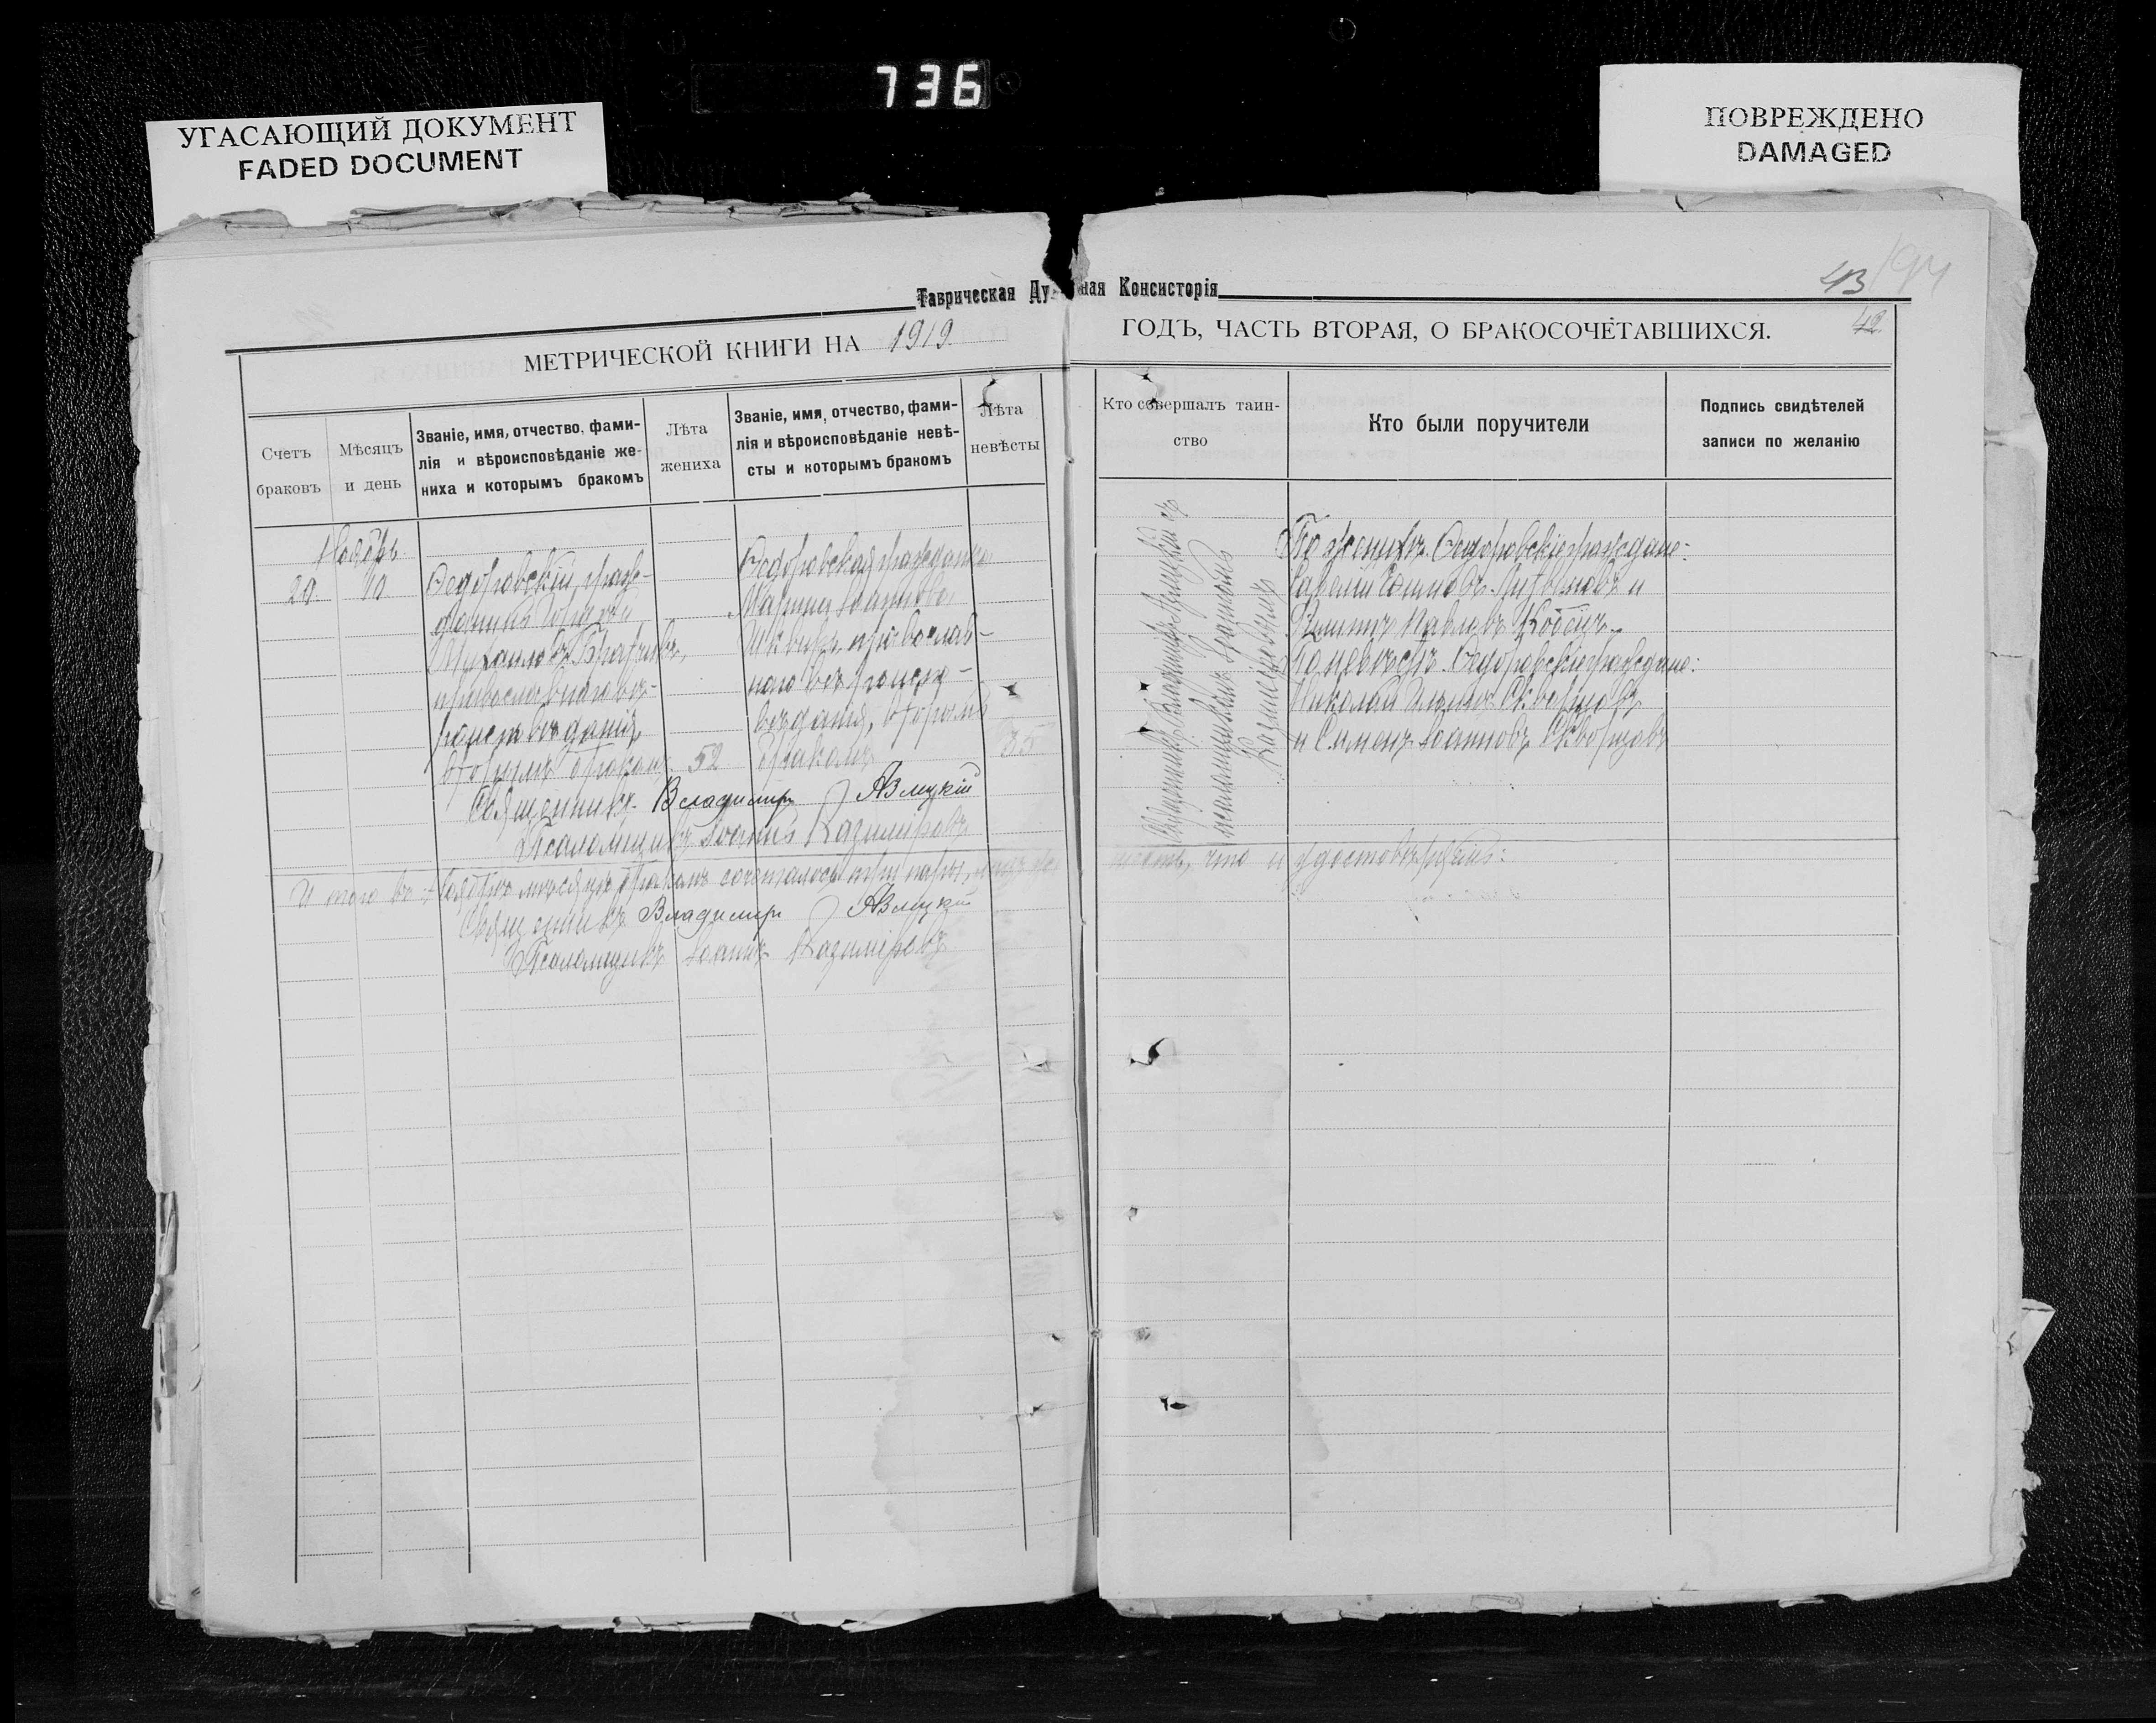 736
УГАСАЮЩИЙ ДОКУМЕНТ
FADED DOCUMENT
ПОВРЕЖДЕНО
DAMAGED
43
Таврическая Ду ная Консисторія
42
МЕТРИЧЕСКОЙ КНИГИ НА 1919 ГОДЪ, ЧАСТЬ ВТОРАЯ, О БРАКОСОЧЕТАВШИХСЯ.
Счетъ браковъ
Мѣсяцъ и день
Званіе, имя, отчество, фами-
лія и вѣроисповѣданіе же-
ниха и которымъ бракомъ
Лѣта
жениха
Званіе, имя, отчество, фами-
лія и вѣроисповѣданіе невѣ-
сты и которымъ бракомъ
Лѣта
невѣсты
Кто совершалъ таин-
ство
Кто были поручители
Подпись свидѣтелей
записи по желанію
Ноябрь
20. 10
Ѳедоровскій граж-
данинъ
Михаиловъ
православнаго вѣ-
роисповѣданія,
вторымъ бракомъ
52
Ѳедоровская гражданка
Марина Іоаннова
православ-
наго вѣроиспо-
вѣданія, вторымъ
бракомъ
35
Священникъ Владимиръ
псаломщикомъ
По женихѣ: Ѳедоровскіе граждане:
и
Филиппъ Павловъ Кобецъ.
По невѣстѣ: Ѳедоровскіе граждане:
Николай Скворцовъ
и Симеонъ Іоанновъ Скворцовъ
Священникъ Владимиръ
Псаломщикъ Іоаннъ Казимировъ
Итого въ Ноябрѣ мѣсяцѣ бракомъ сочеталось пары, что и удостовѣряемъ:
Священникъ Владимиръ
Псаломщикъ Іоаннъ Казимировъ